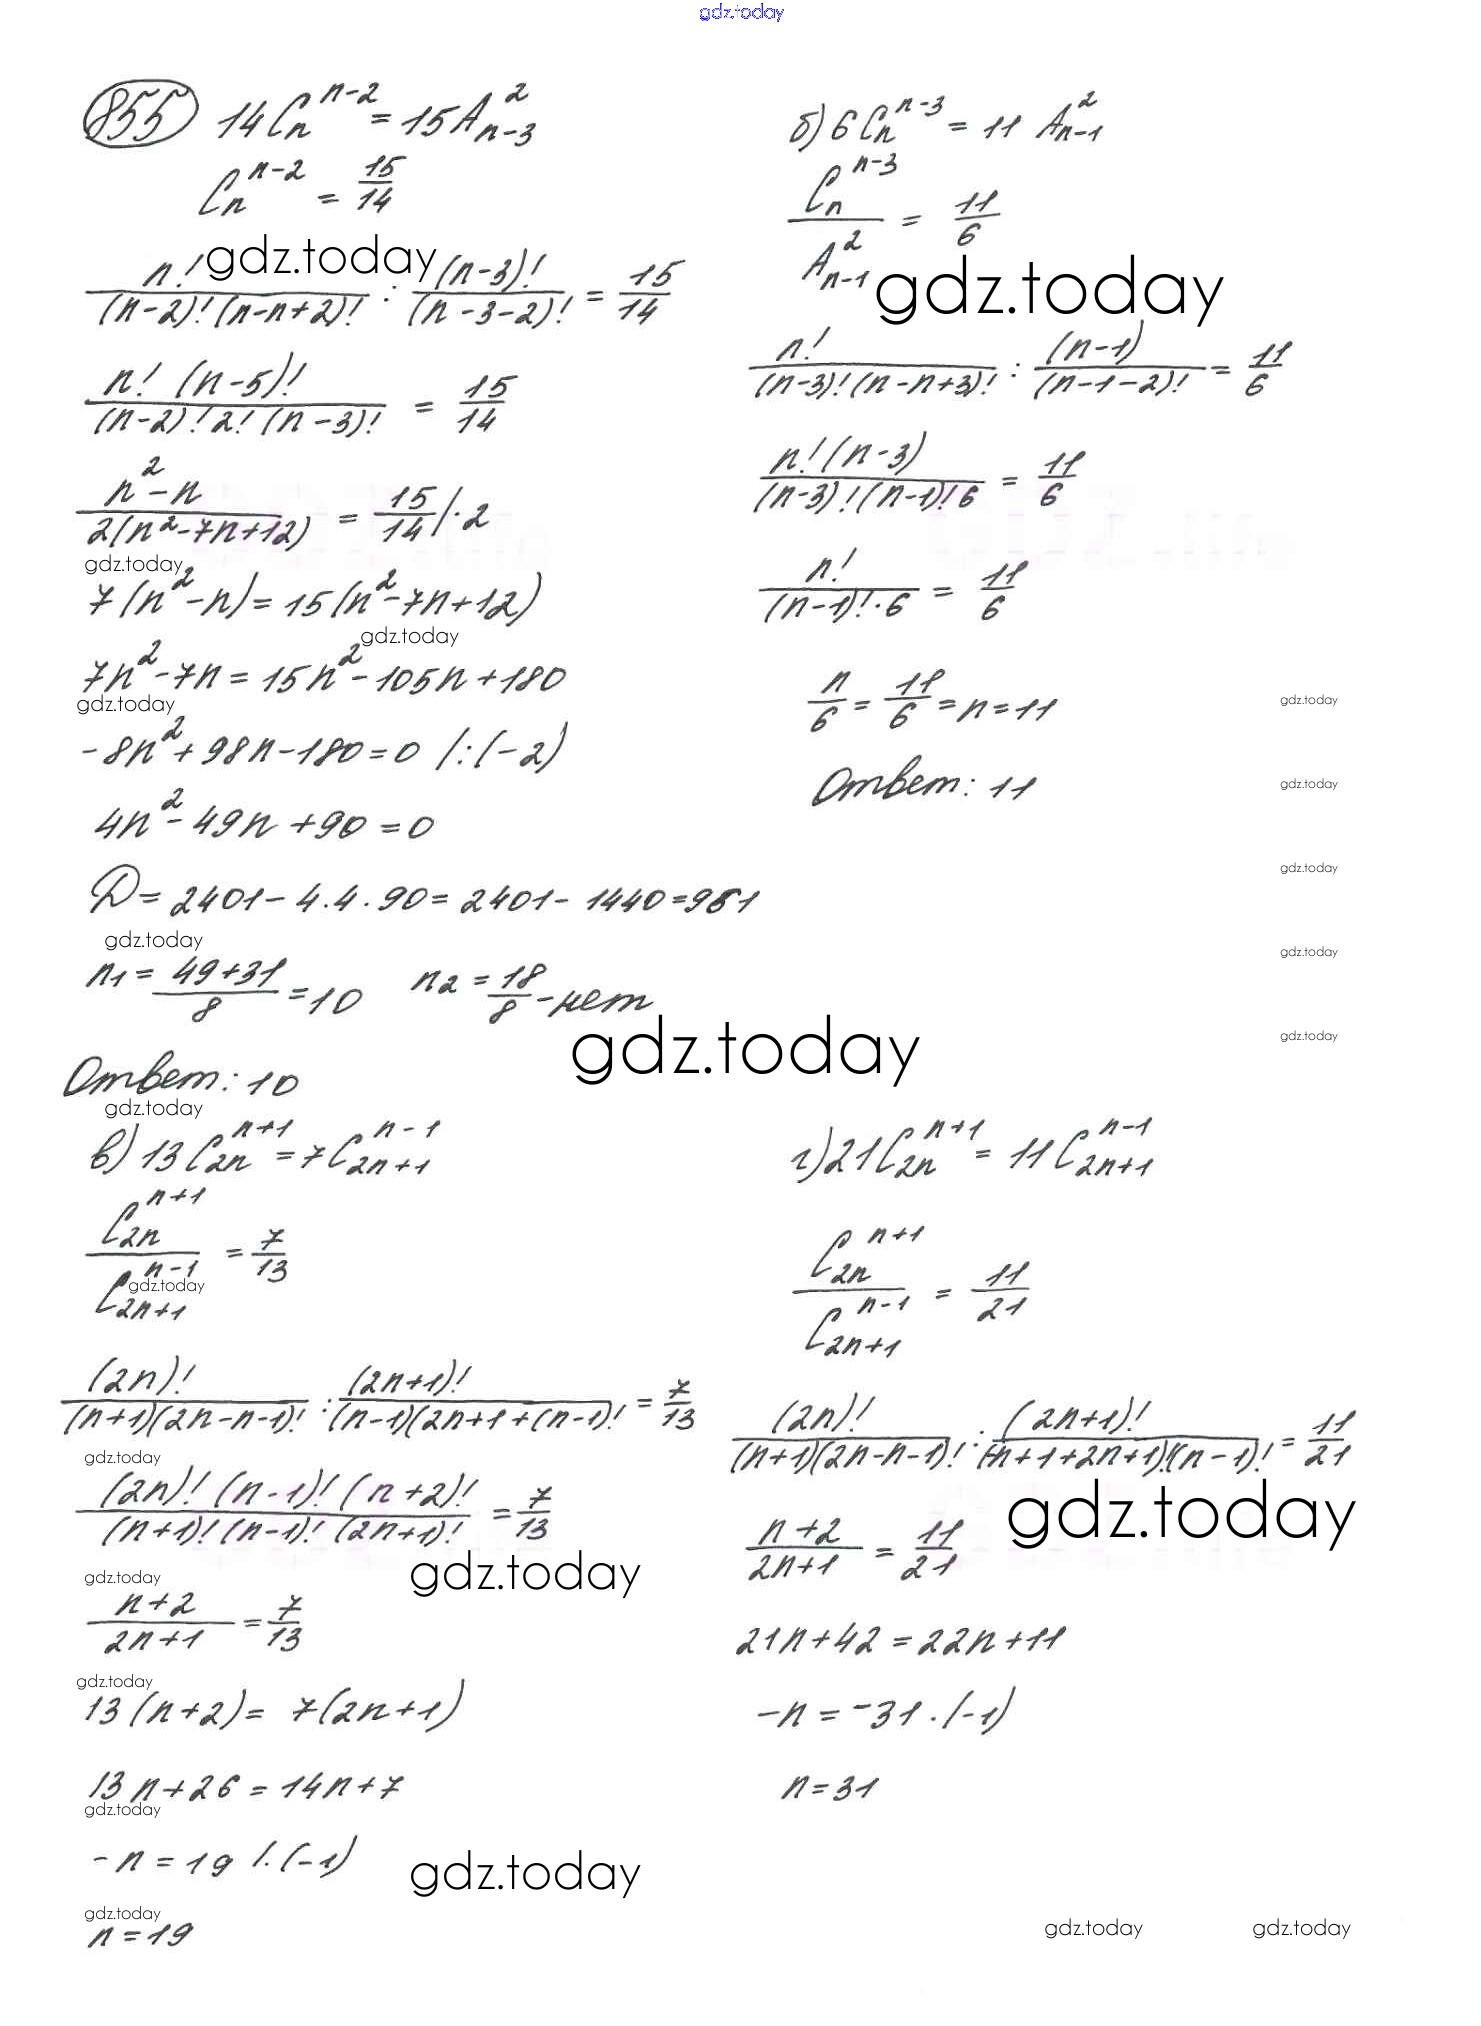 gdz.today
855 14C_n^{n-2} = 15A_{n-3}^2
C_n^{n-2} = 15/14
gdz.today
n!/((n-2)!(n-n+2)!) : (n-3)!/((n-3-2)!) = 15/14
n!(n-5)!/((n-2)!2!(n-3)!) = 15/14
(n²-n)/(2(n²-7n+12)) = 15/14 |·2
gdz.today
7(n²-n) = 15(n²-7n+12)
gdz.today
7n²-7n = 15n²-105n+180
gdz.today
-8n²+98n-180=0 |:(-2)
4n²-49n+90=0
D=2401-4·4·90=2401-1440=961
gdz.today
n1 = (49+31)/8 = 10 n2 = 18/8 - нет
Ответ: 10
gdz.today
б) 6C_n^{n-3} = 11 A_{n-1}^2
C_n^{n-3}/A_{n-1}^2 = 11/6
gdz.today
n!/((n-3)!(n-n+3)!) : (n-1)/((n-1-2)!) = 11/6
n!(n-3)/((n-3)!(n-1)!6) = 11/6
n!/((n-1)!·6) = 11/6
n/6 = 11/6 = n=11
Ответ: 11
gdz.today
gdz.today
gdz.today
gdz.today
gdz.today
gdz.today
в) 13C_{2n}^{n+1} = 7C_{2n+1}^{n-1}
C_{2n}^{n+1}/C_{2n+1}^{n-1} = 7/13
gdz.today
(2n)!/((n+1)(2n-n-1)! : (2n+1)!/((n-1)(2n+1+(n-1)! = 7/13
gdz.today
(2n)!(n-1)!(n+2)!/((n+1)!(n-1)!(2n+1)!) = 7/13
gdz.today
gdz.today
(n+2)/(2n+1) = 7/13
gdz.today
13(n+2)= 7(2n+1)
13n+26=14n+7
gdz.today
-n=19 |·(-1)
gdz.today
gdz.today
n=19
г) 21C_{2n}^{n+1} = 11C_{2n+1}^{n-1}
C_{2n}^{n+1}/C_{2n+1}^{n-1} = 11/21
(2n)!/((n+1)(2n-n-1)! : (2n+1)!/((-n+1+2n+1)!(n-1)! = 11/21
gdz.today
(n+2)/(2n+1) = 11/21
21n+42=22n+11
-n=-31·(-1)
n=31
gdz.today
gdz.today